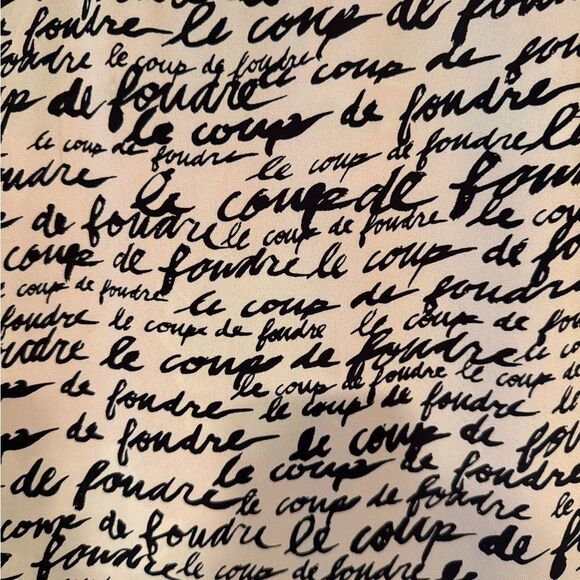 foudre le coup de foudre
foudre le coup de foudre le coup de foudre
coup de foudre le coup de foudre
le coup de foudre le coup de foudre le
foudre le coup de foudre
de foudre le coup de foudre le coup
coup de foudre le coup de
le coup de foudre le coup de foudre
foudre le coup de foudre le coup de
foudre le coup de foudre le coup
de foudre le coup de foudre le coup de
de foudre le coup de foudre le coup de foudre
de foudre le coup de foudre
coup de foudre le coup de foudre
de foudre le coup de foudre